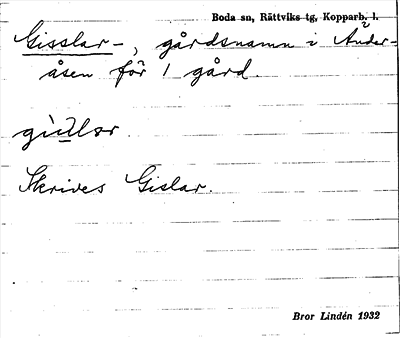 Boda sn, Rättviks tg, Kopparb. l.
Gisslar-, gårdsnamn i Ander-
åsen för 1 gård.
Skrives Gislar.
Bror Lindén 1932